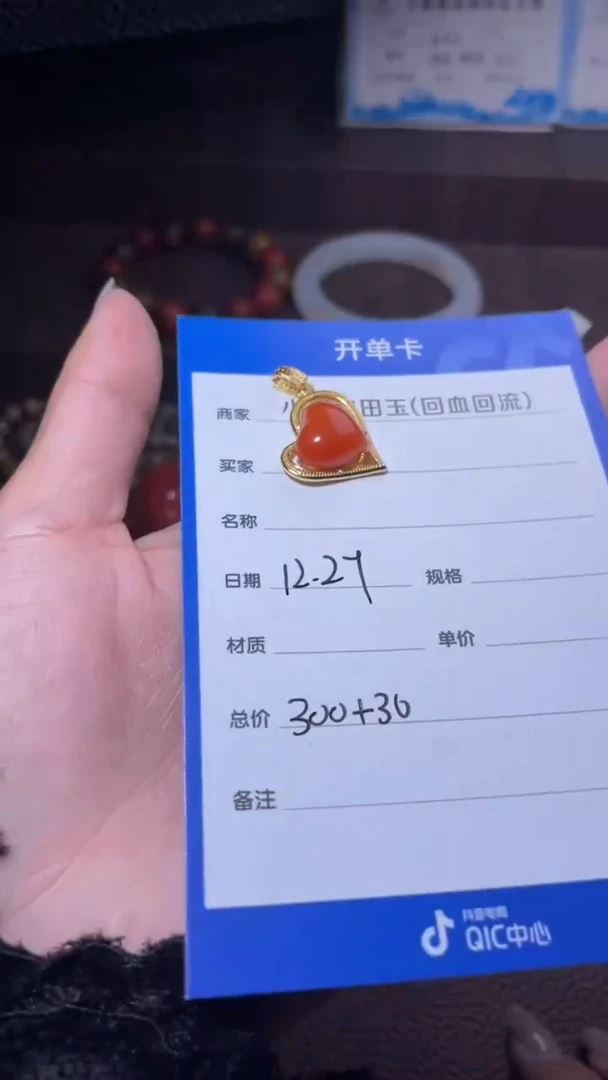 开单卡
商家 田玉(回血回流)
买家
名称
日期 12.27 规格
材质 单价
总价 300+30
备注
抖音电商
QIC中心